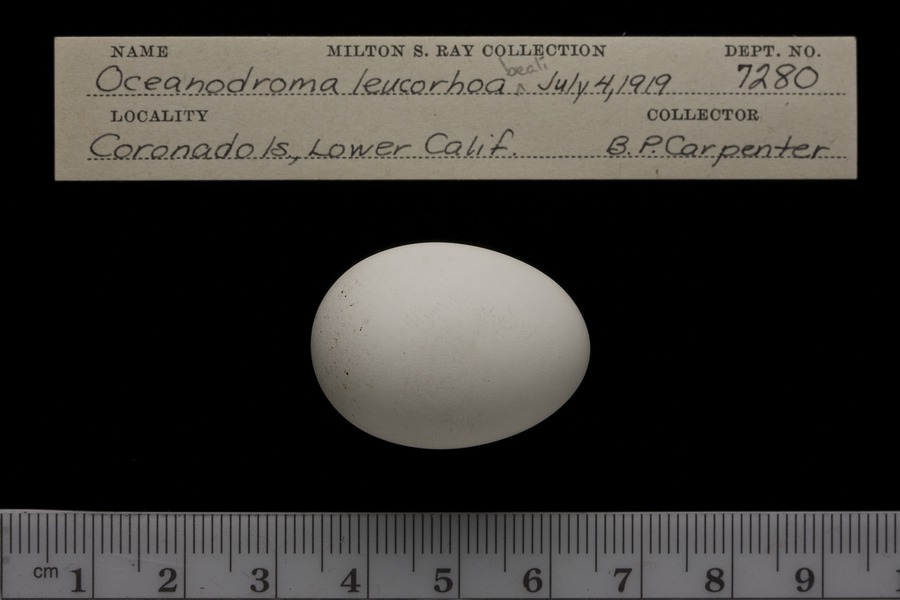 NAME MILTON S. RAY COLLECTION DEPT. NO.
beali
Oceanodroma leucorhoa ^ July 4, 1919 7280
LOCALITY COLLECTOR
Coronado Is., Lower Calif. B.P. Carpenter
cm 1 2 3 4 5 6 7 8 9 1